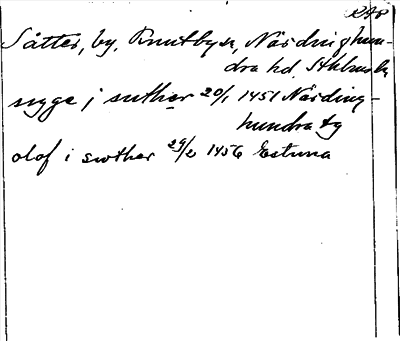 Sätter, by, Knutby sn, Närdinghun-
dra hd, Sthlms
nygge j suther 20/1 1451 Närding-
hundra tg
olof i swther 29/2 1456 Estuna